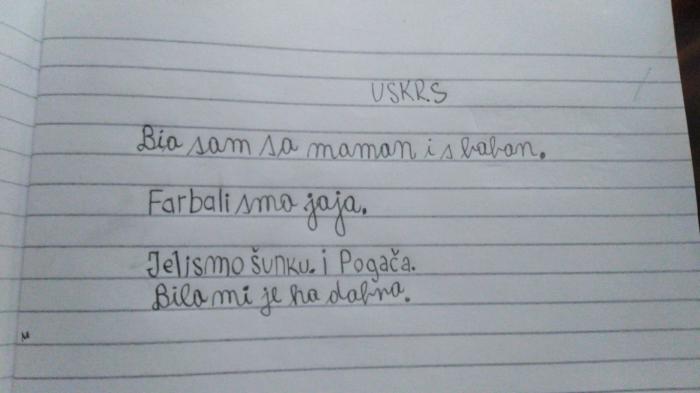 USKRS
Bio sam sa maman i s baban.
Farbali smo jaja.
Jeli smo šunku. i Pogača.
Bilo mi je ha dobro.